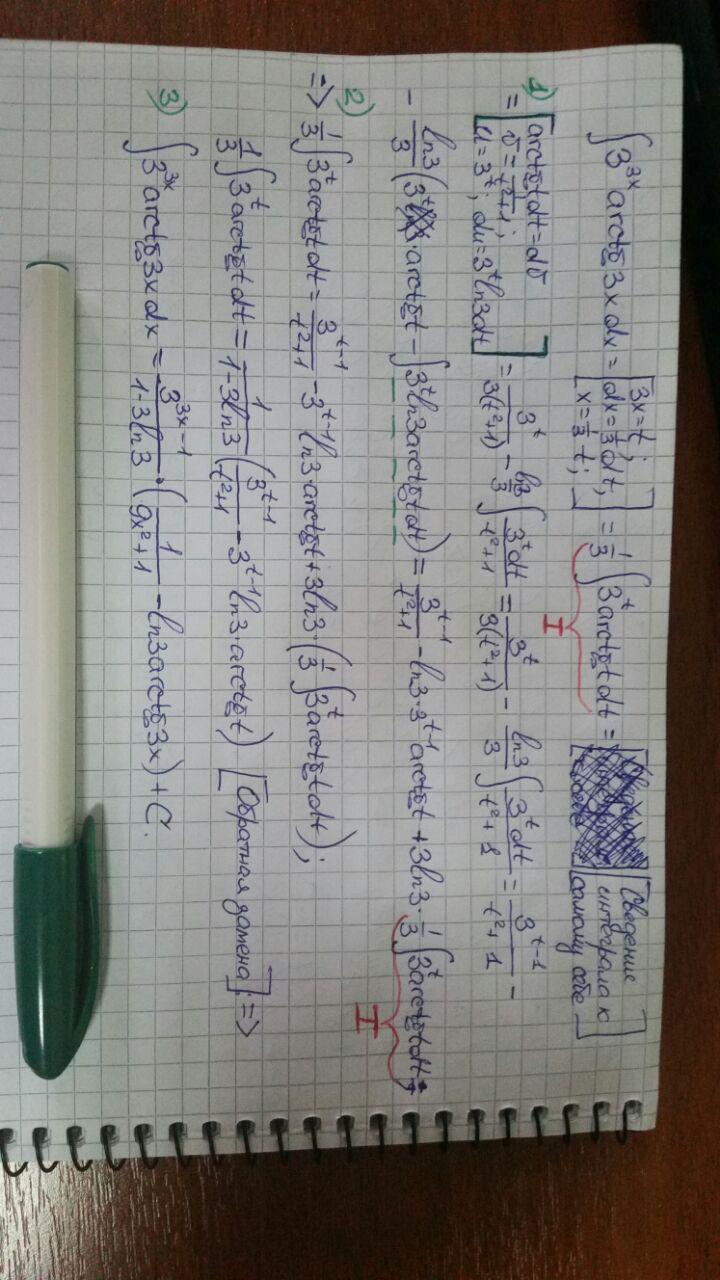 ∫ 3^{3x} arctg 3x dx = [3x = t; dx = 1/3 dt; x = 1/3 t;] = 1/3 ∫ 3^t arctg t dt = [Сведение интеграла к самому себе]
I
1) = [arctg t dt = dv; v = 1/(t²+1); u = 3^t; du = 3^t ln3 dt] = 3^t/(3(t²+1)) - ln3/3 ∫ 3^t dt/(t²+1) = 3^t/(3(t²+1)) - ln3/3 ∫ 3^t dt/(t²+1) = 3^{t-1}/(t²+1) -
- ln3/3 (3^t arctg t - ∫ 3^t ln3 arctg t dt) = 3^{t-1}/(t²+1) - ln3·3^{t-1} arctg t + 3ln3·1/3 ∫ 3^t arctg t dt
I
2) => 1/3 ∫ 3^t arctg t dt = 3^{t-1}/(t²+1) - 3^{t-1} ln3·arctg t + 3ln3·(1/3 ∫ 3^t arctg t dt);
1/3 ∫ 3^t arctg t dt = 1/(1-3ln3) (3^{t-1}/(t²+1) - 3^{t-1} ln3·arctg t) [Обратная замена]; =>
3) ∫ 3^{3x} arctg 3x dx = 3^{3x-1}/(1-3ln3)·(1/(9x²+1) - ln3 arctg 3x) + C.